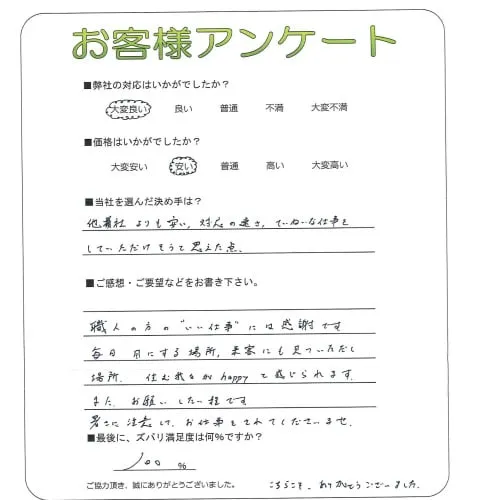 お客様アンケート
■弊社の対応はいかがでしたか?
大変良い 良い 普通 不満 大変不満
■価格はいかがでしたか?
大変安い 安い 普通 高い 大変高い
■当社を選んだ決め手は?
他業社よりも安い,対応の速さ,ていねいな仕事を
していただけそうと思えた点.
■ご感想・ご要望などをお書き下さい。
職人の方の"いい仕事"には感謝です
毎日 目にする場所,来客にも見ていただく
場所. 住む我々がhappyと感じられます.
また、お願いしたい程です
暑さに注意して、お仕事をされてくださいませ.
■最後に、ズバリ満足度は何%ですか?
100 %
ご協力頂き、誠にありがとうございました。
こちらこそ、ありがとうございました.